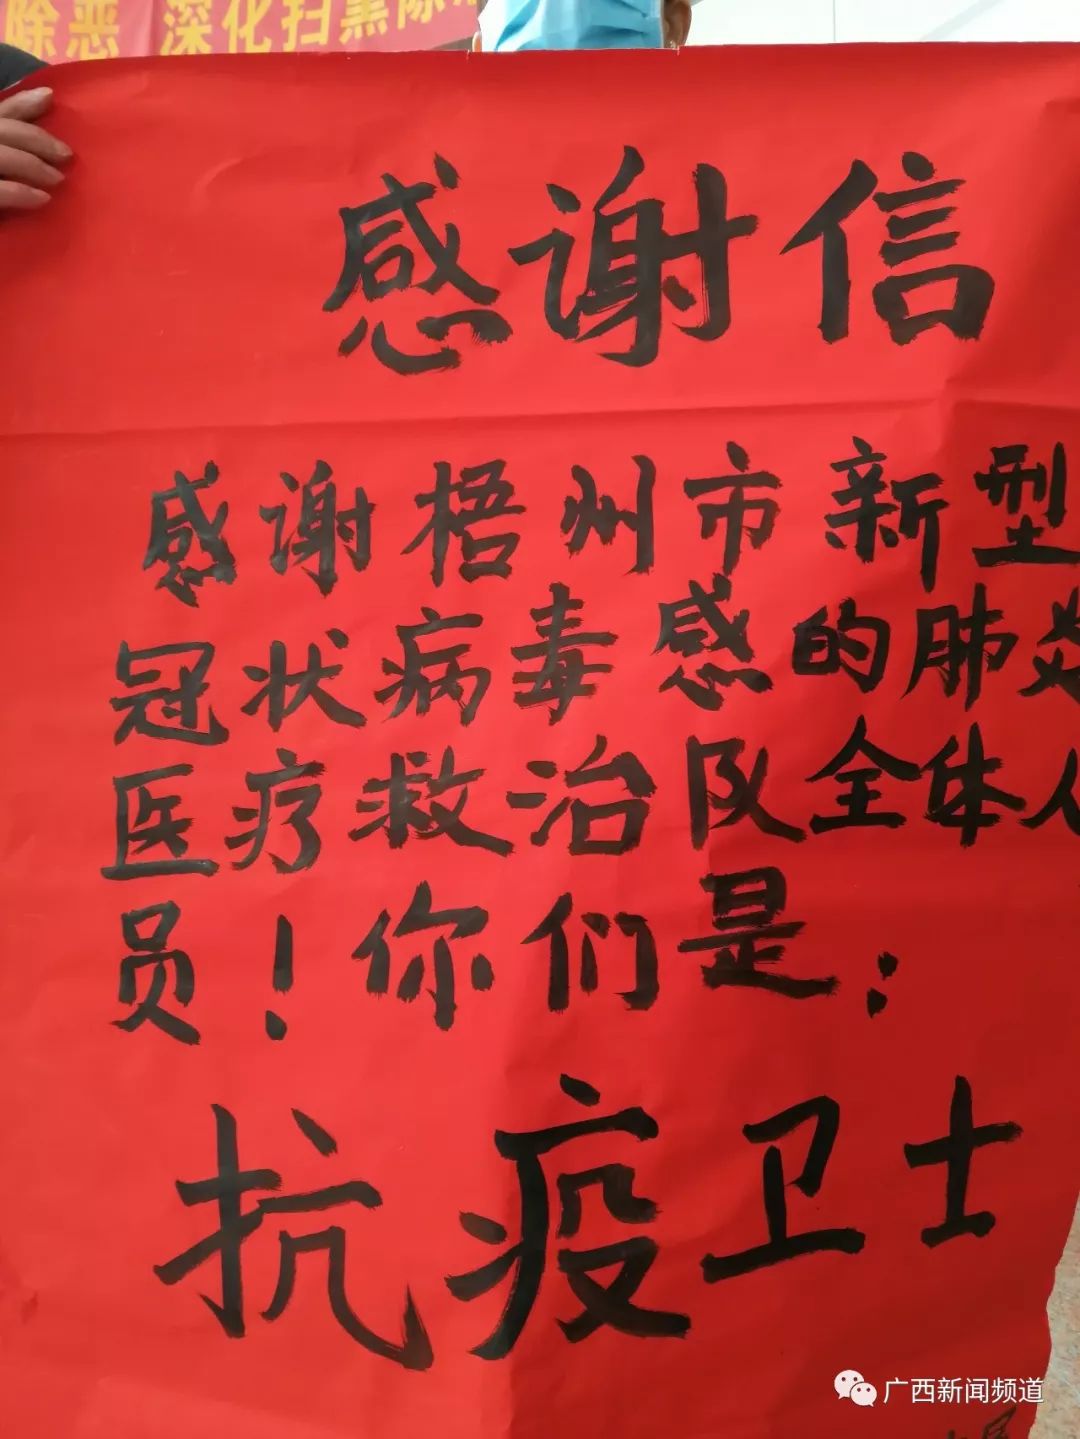 除恶 深化扫黑除
感谢信
感谢梧州市新型
冠状病毒感的肺炎
医疗救治队全体人
员！你们是：
抗疫卫士
广西新闻频道